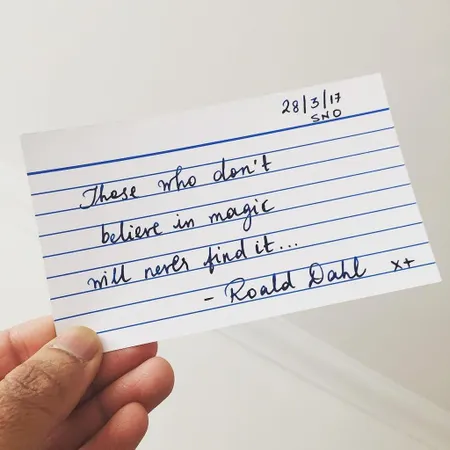 28/3/17
SNO
Those who don't
believe in magic
will never find it...
- Roald Dahl x+